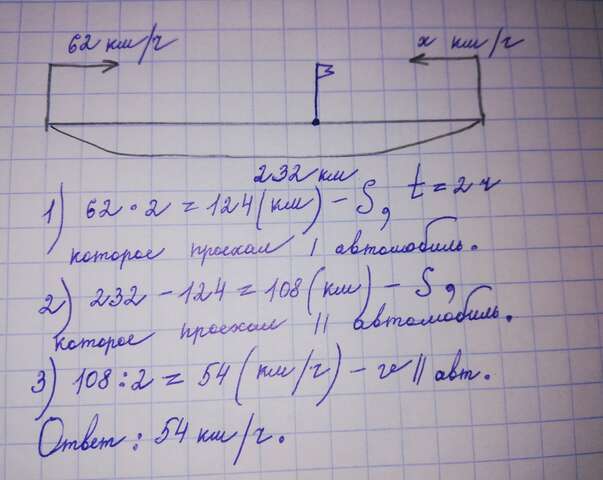 62 км/ч
x км/ч
232 км
t = 2 ч
1) 62 · 2 = 124 (км) – S,
которое проехал I автомобиль.
2) 232 – 124 = 108 (км) – S,
которое проехал II автомобиль.
3) 108 : 2 = 54 (км/ч) – v II авт.
Ответ: 54 км/ч.